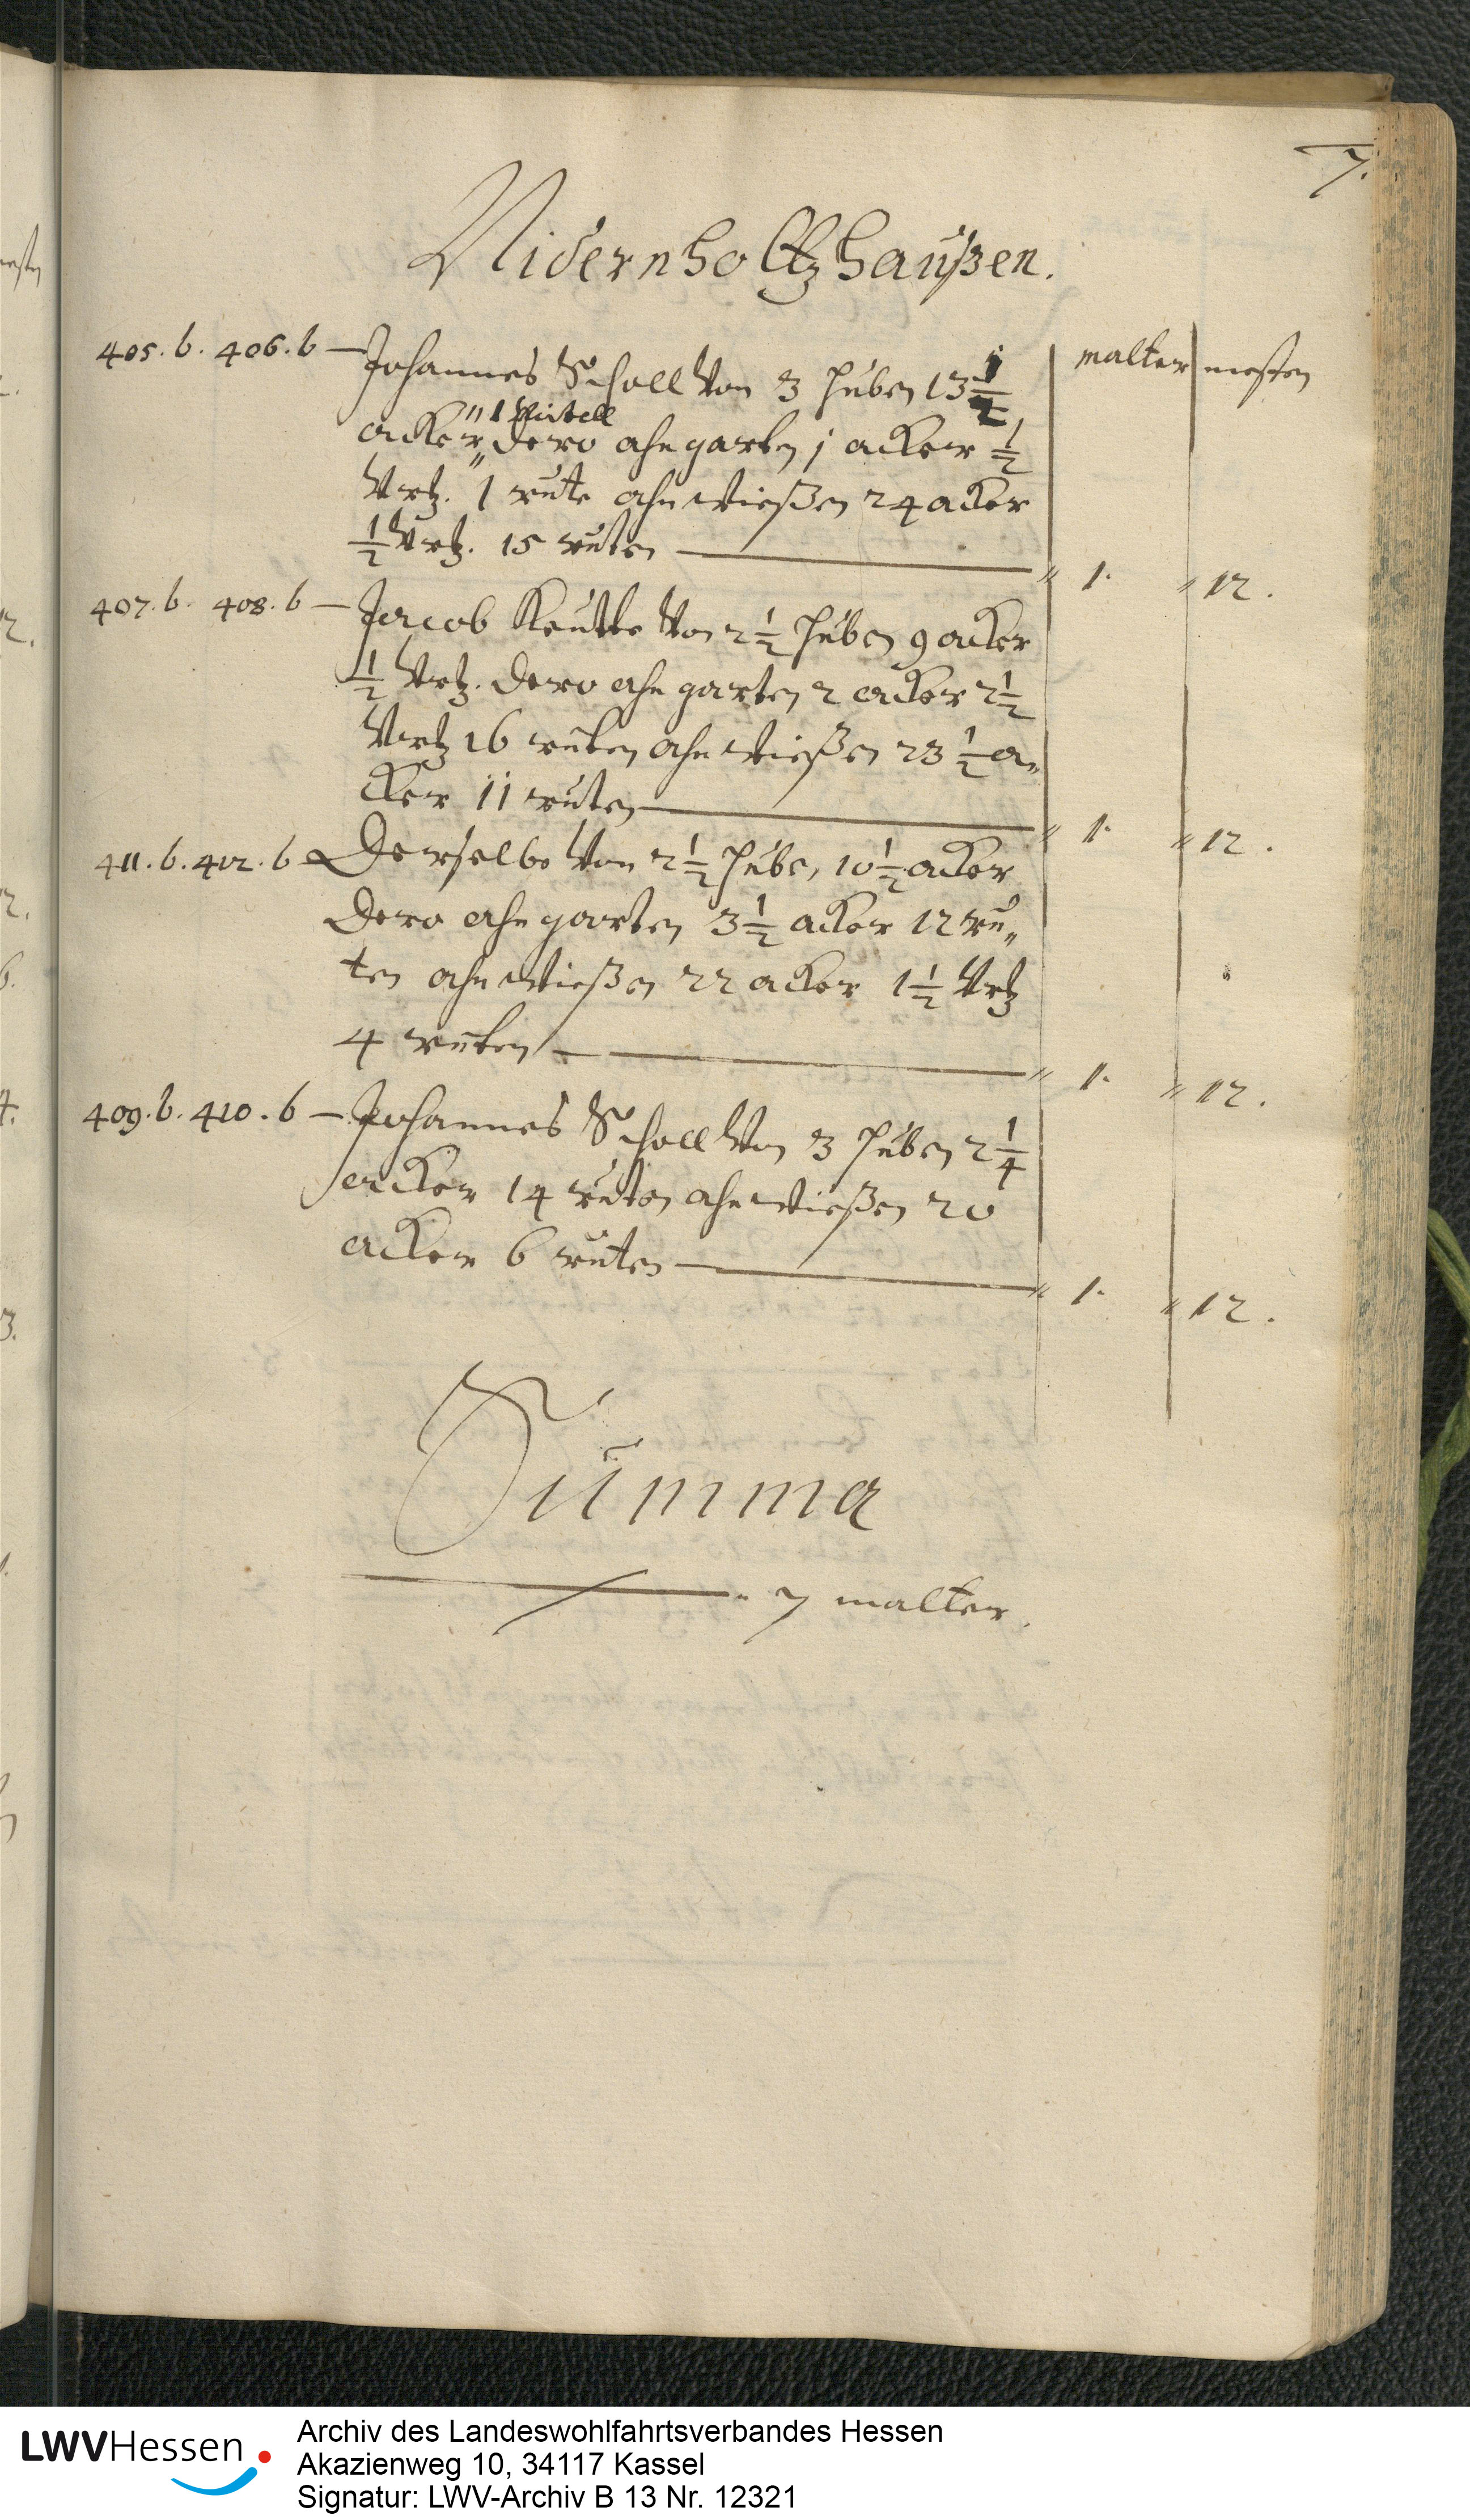 7.
Nidernholtzhaußen.
malter mesten
405.b. 406.b — Johannes Scholl von 3 Huben 13 1/2
" 1 Virtell
acker " dero ahn garten j acker 1/2
Vrtz. 1 rute ahn wießen 24 acker
1/2 Vrtz. 15 ruten — " 1. " 12.
407.b. 408.b — Jacob Keutte von 2 1/2 Huben 9 acker
1/2 Vrtz. dero ahn garten 2 acker 2 1/2
Vrtz 16 ruten ahn wießen 23 1/2 a„
cker 11 ruten — " 1. " 12.
411.b. 412.b — Derselbe von 2 1/2 Hube, 10 1/2 acker
dero ahn garten 3 1/2 acker 12 ru„
ten ahn wießen 22 acker 1 1/2 Vrtz
4 ruten — " 1. " 12.
409.b. 410.b — Johannes Scholl von 3 Huben 2 1/4
acker 14 ruten ahn wießen 20
acker 6 ruten — " 1. " 12.
Summa
7 malter.
LWVHessen
Archiv des Landeswohlfahrtsverbandes Hessen
Akazienweg 10, 34117 Kassel
Signatur: LWV-Archiv B 13 Nr. 12321